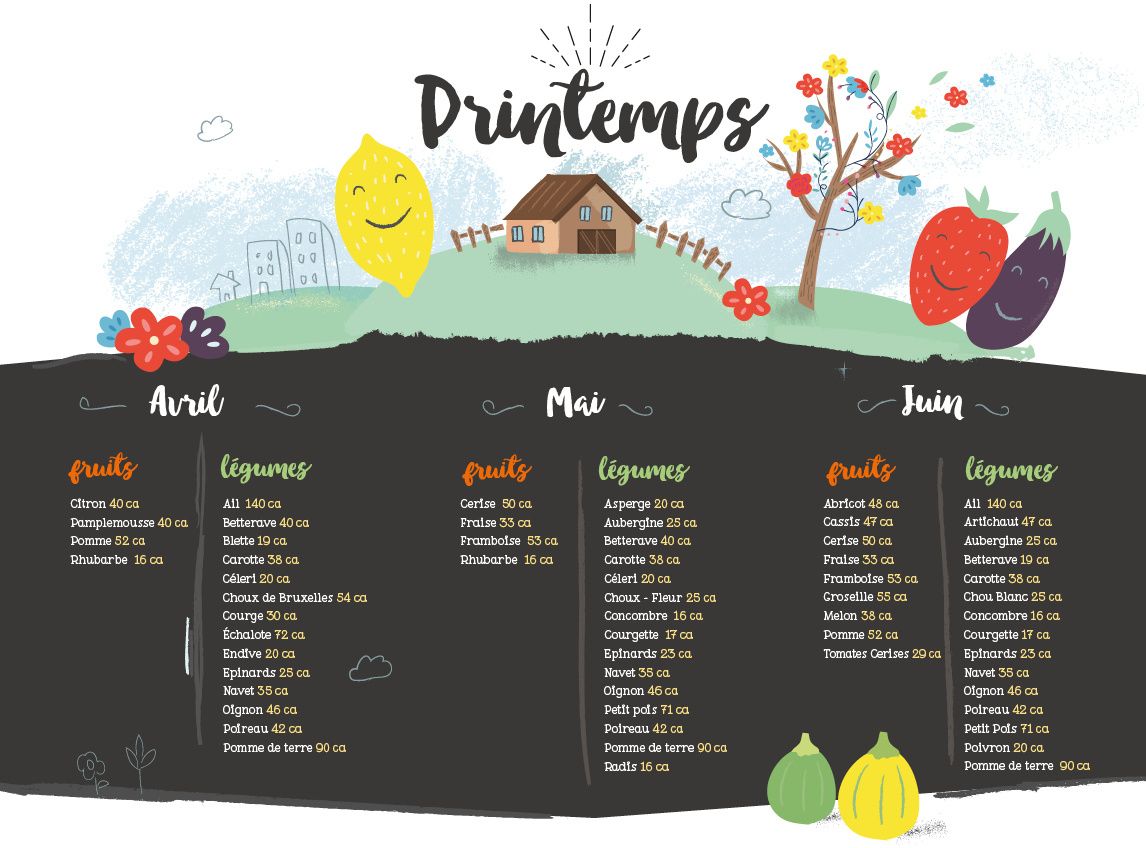 Printemps
Avril
fruits
Citron 40 ca
Pamplemousse 40 ca
Pomme 52 ca
Rhubarbe 16 ca
légumes
Ail 140 ca
Betterave 40 ca
Blette 19 ca
Carotte 38 ca
Céleri 20 ca
Choux de Bruxelles 54 ca
Courge 30 ca
Échalote 72 ca
Endive 20 ca
Epinards 25 ca
Navet 35 ca
Oignon 46 ca
Poireau 42 ca
Pomme de terre 90 ca
Mai
fruits
Cerise 50 ca
Fraise 33 ca
Framboise 53 ca
Rhubarbe 16 ca
légumes
Asperge 20 ca
Aubergine 25 ca
Betterave 40 ca
Carotte 38 ca
Céleri 20 ca
Choux - Fleur 25 ca
Concombre 16 ca
Courgette 17 ca
Epinards 23 ca
Navet 35 ca
Oignon 46 ca
Petit pois 71 ca
Poireau 42 ca
Pomme de terre 90 ca
Radis 16 ca
Juin
fruits
Abricot 48 ca
Cassis 47 ca
Cerise 50 ca
Fraise 33 ca
Framboise 53 ca
Groseille 55 ca
Melon 38 ca
Pomme 52 ca
Tomates Cerises 29 ca
légumes
Ail 140 ca
Artichaut 47 ca
Aubergine 25 ca
Betterave 19 ca
Carotte 38 ca
Chou Blanc 25 ca
Concombre 16 ca
Courgette 17 ca
Epinards 23 ca
Navet 35 ca
Oignon 46 ca
Poireau 42 ca
Petit Pois 71 ca
Poivron 20 ca
Pomme de terre 90 ca